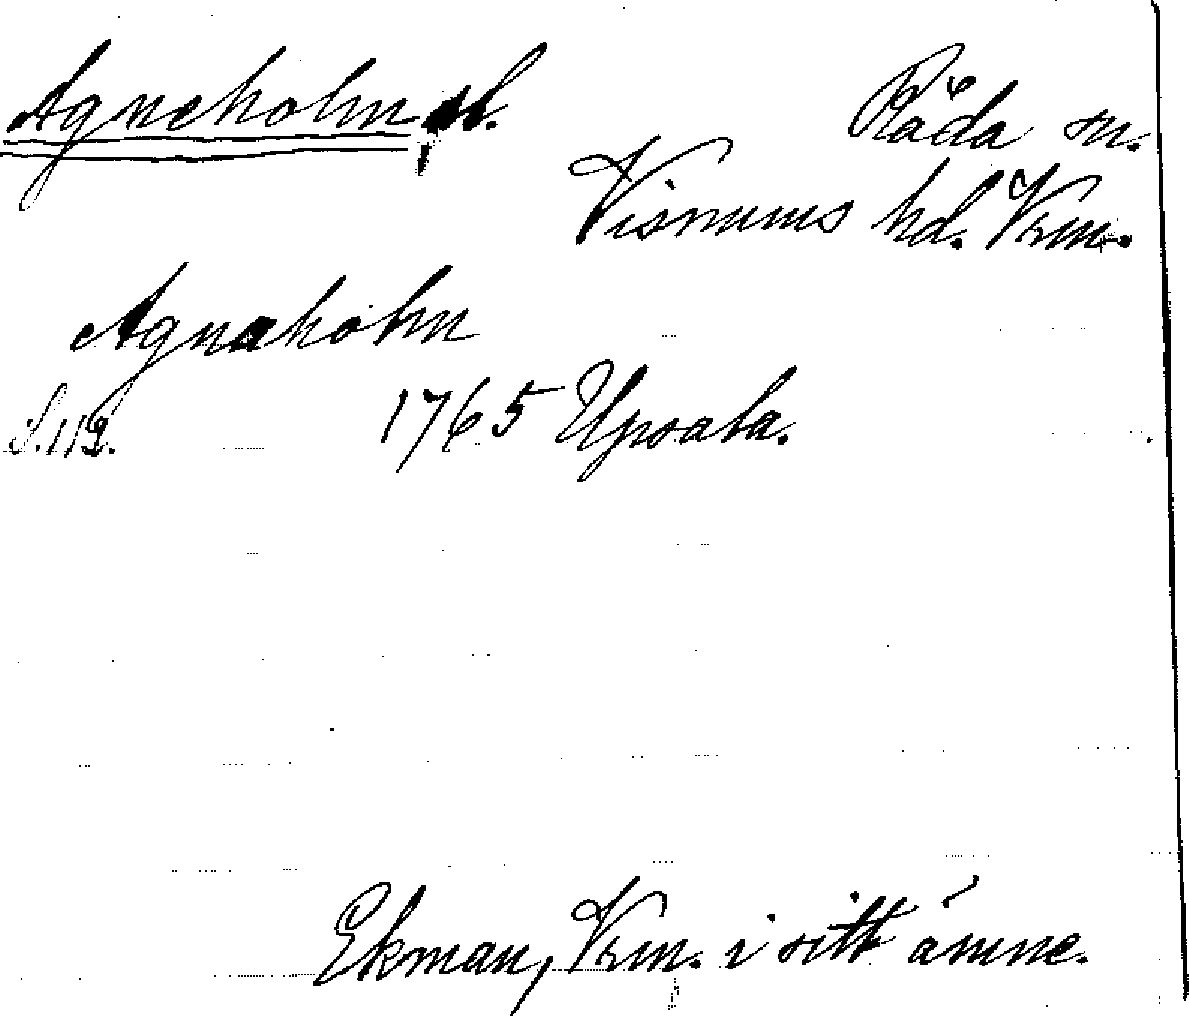 Agneholm, sl.
Råda sn.
Visnums hd. Vrm.
Agnaholm
S. 112. 1765 Upsala.
Ekman, Vrm. i sitt ämne.